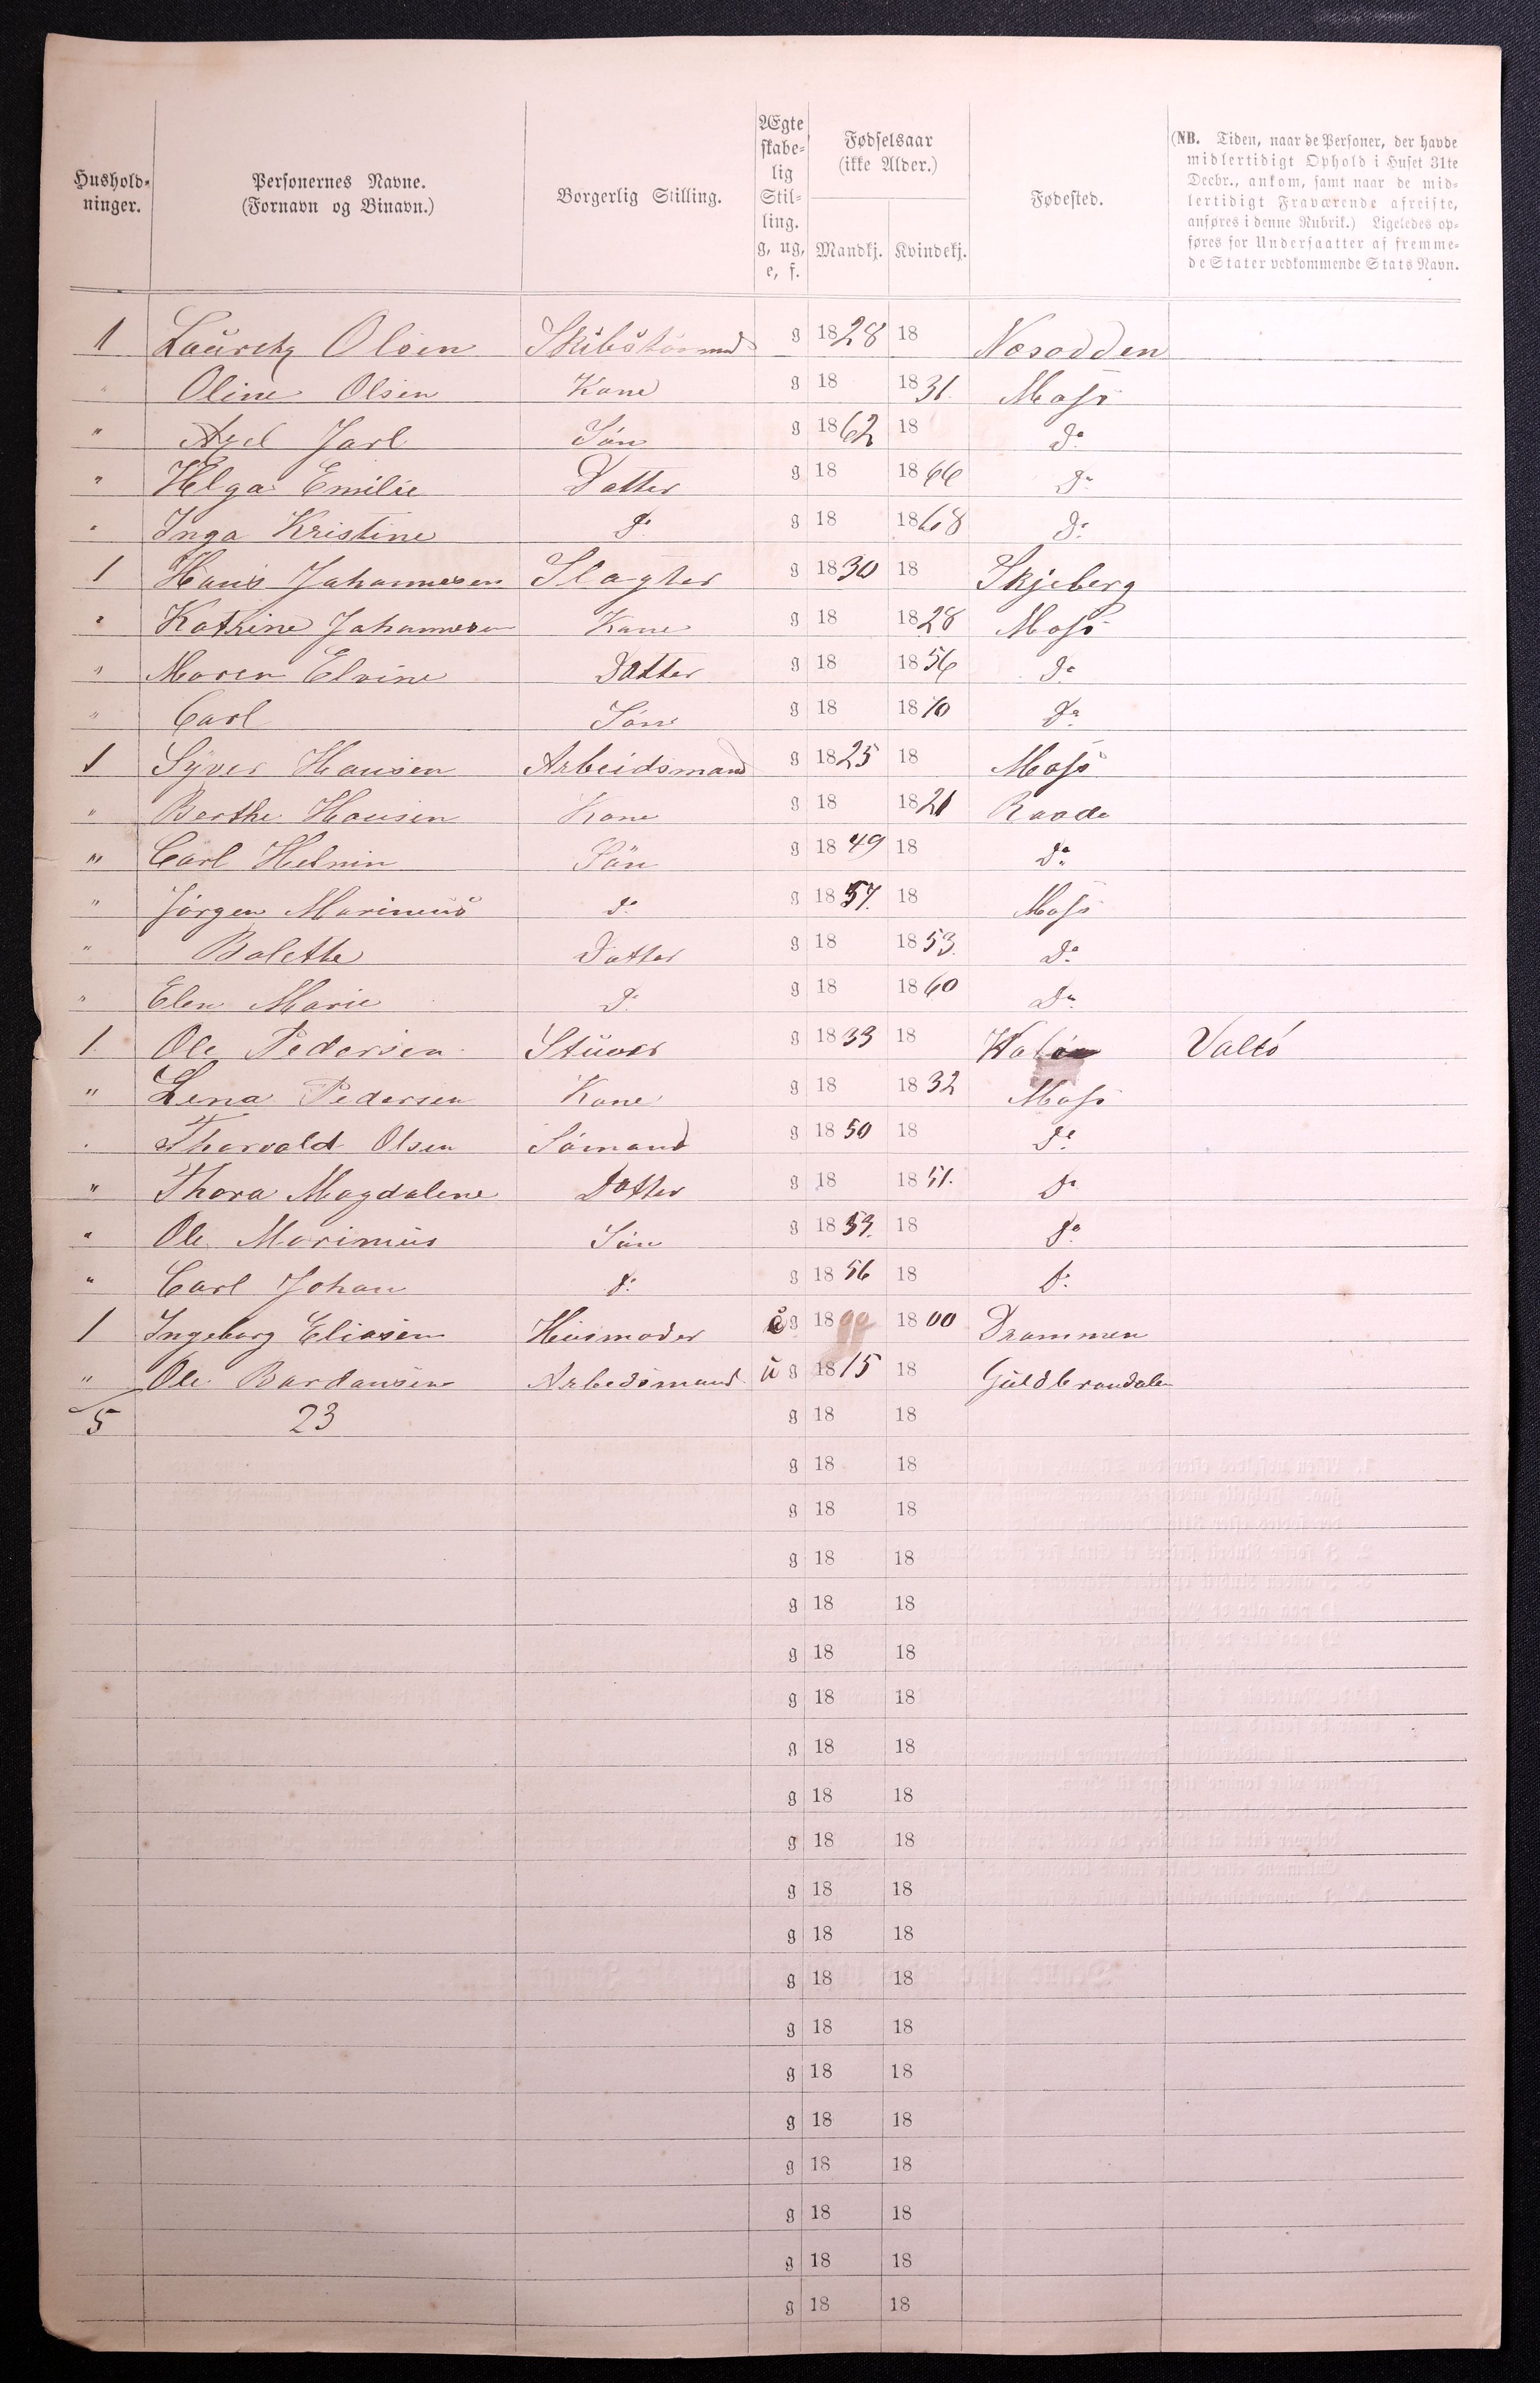 Hushold-
ninger.
Personernes Navne.
(Fornavn og Binavn.)
Borgerlig Stilling.
Ægte
skabe-
lig
Stil-
ling.
g, ug,
e, f.
Fødselsaar
(ikke Alder.)
Mandkj. Kvindekj.
Fødested.
(NB. Tiden, naar de Personer, der havde
midlertidigt Ophold i Huset 31te
Decbr., ankom, samt naar de mid-
lertidigt Fraværende afreiste,
anføres i denne Rubrik.) Ligeledes op-
føres for Undersaatter af fremme-
de Stater vedkommende Stats Navn.
1 Lauretz Olsen g 1828 18 Nesodden
" Oline Olsen Kone g 18 1831. Moss
" Axel Jarl Søn g 1862 18 Do
" Helga Emilie Datter g 18 1866 Do
" Inga Kristine Do g 18 1868 Do
1 Hans Johannesen Slagter g 1830 18 Skjeberg
" Katrine Johannesen Kone g 18 1828 Moss
" Maren Elvine Datter g 18 1856 Do
" Carl Søn g 18 1870 Do
1 Syver Hansen Arbeidsmand g 1825 18 Moss
" Berthe Hansen Kone g 18 1821 Raade
" Carl Søn g 1849 18 Do
" Jørgen Marinius Do g 1857. 18 Moss
" Bolette Datter g 18 1853. Do
" Elen Marie Do g 18 1860 Do
1. Ole Pedersen Stuver g 1833 18 Valø
" Lena Pedersen Kone g 18 1832 Moss
" Thorvald Olsen Sømand g 1850 18 Do
" Thora Magdalene Datter g 18 1851. Do
" Ole Marinius Søn g 1853. 18 Do
" Carl Johan Do g 1856 18 Do
1 Ingeborg Eliasen Husmoder g 18 1800 Drammen
" Ole Bardansen Arbedsmand ug 1815 18 Guldbrandalen
5 23 g 18 18
g 18 18
g 18 18
g 18 18
g 18 18
g 18 18
g 18 18
g 18 18
g 18 18
g 18 18
g 18 18
g 18 18
g 18 18
g 18 18
g 18 18
g 18 18
g 18 18
g 18 18
g 18 18
g 18 18